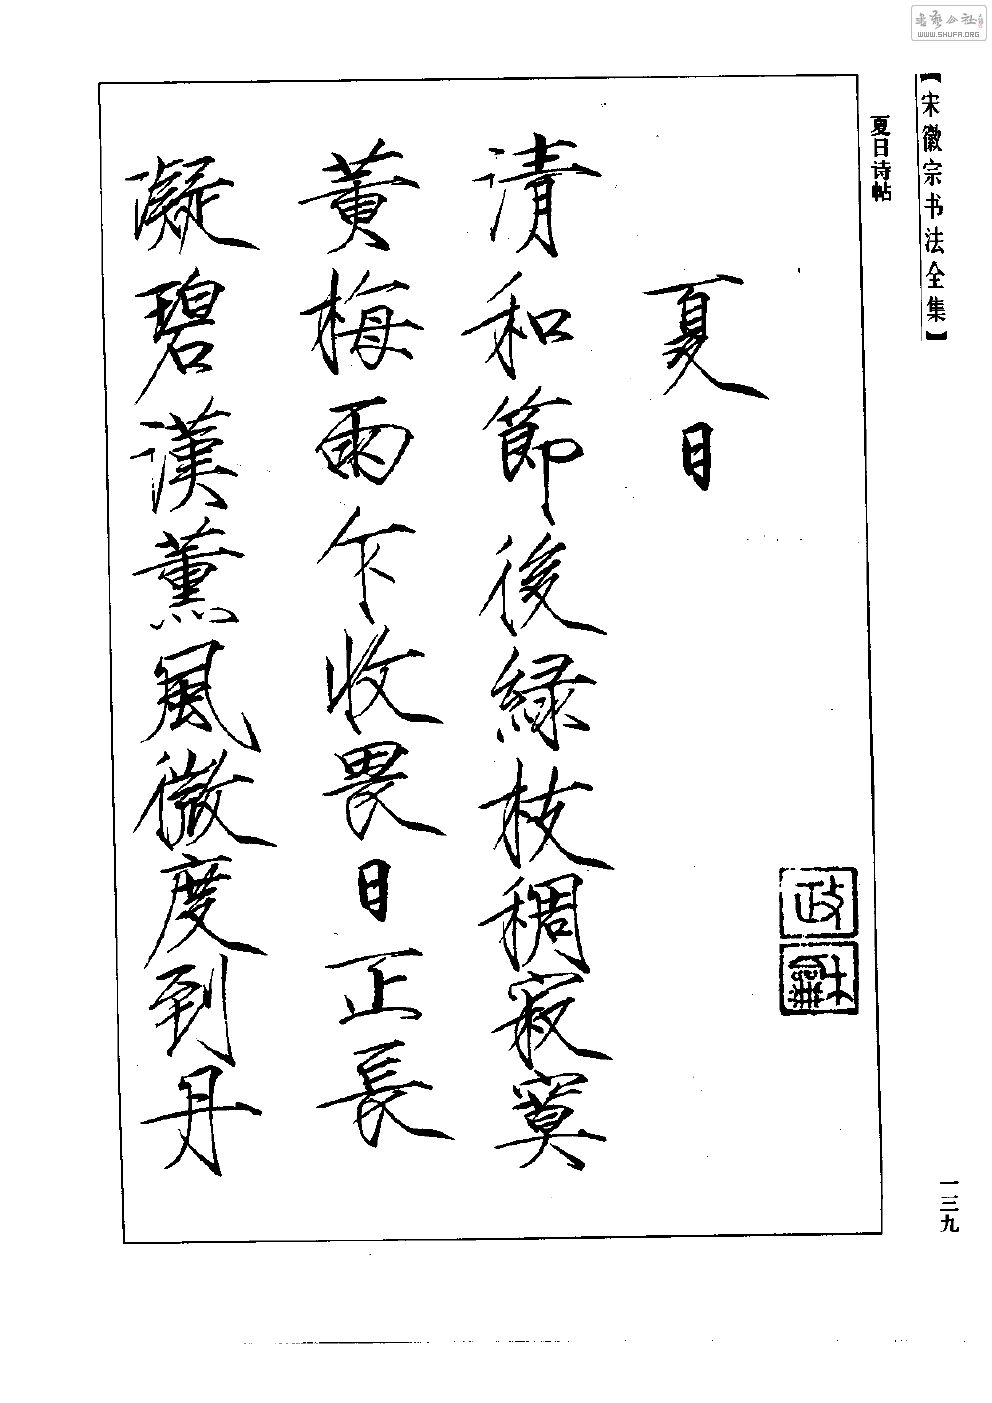 【宋徽宗书法全集】
夏日诗帖
夏日
清和節後綠枝稠寂寞
黄梅雨乍收畏日正長
凝碧漢薰風微度到丹
政
龢
一三九
WWW.SHUFA.ORG